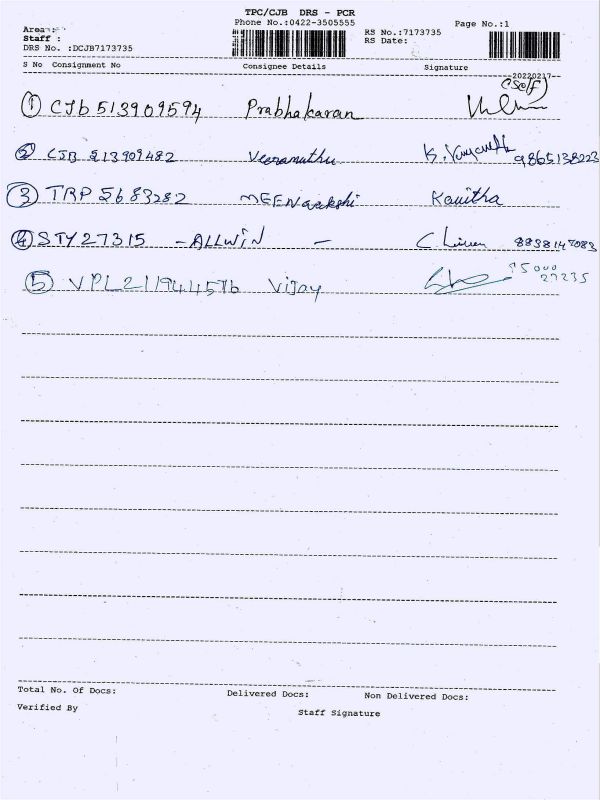 TPC/CJB DRS - PCR
Phone No.:0422-3505555 Page No.:1
Area :
Staff :
DRS No. :DCJB7173735
RS No.:7173735
RS Date:
S No Consignment No Consignee Details Signature
20220217
(Self)
1 CJB 513909594 Prabhakaran
2 CJB 513909482 Veeramuthu K. 9865138223
3 TRP 5683282 MEENaakshi Kavitha
4 STY27315 - ALLWIN - 8838147083
5 VPL211944576 Vijay
75000
27235
Total No. Of Docs: Delivered Docs: Non Delivered Docs:
Verified By Staff Signature